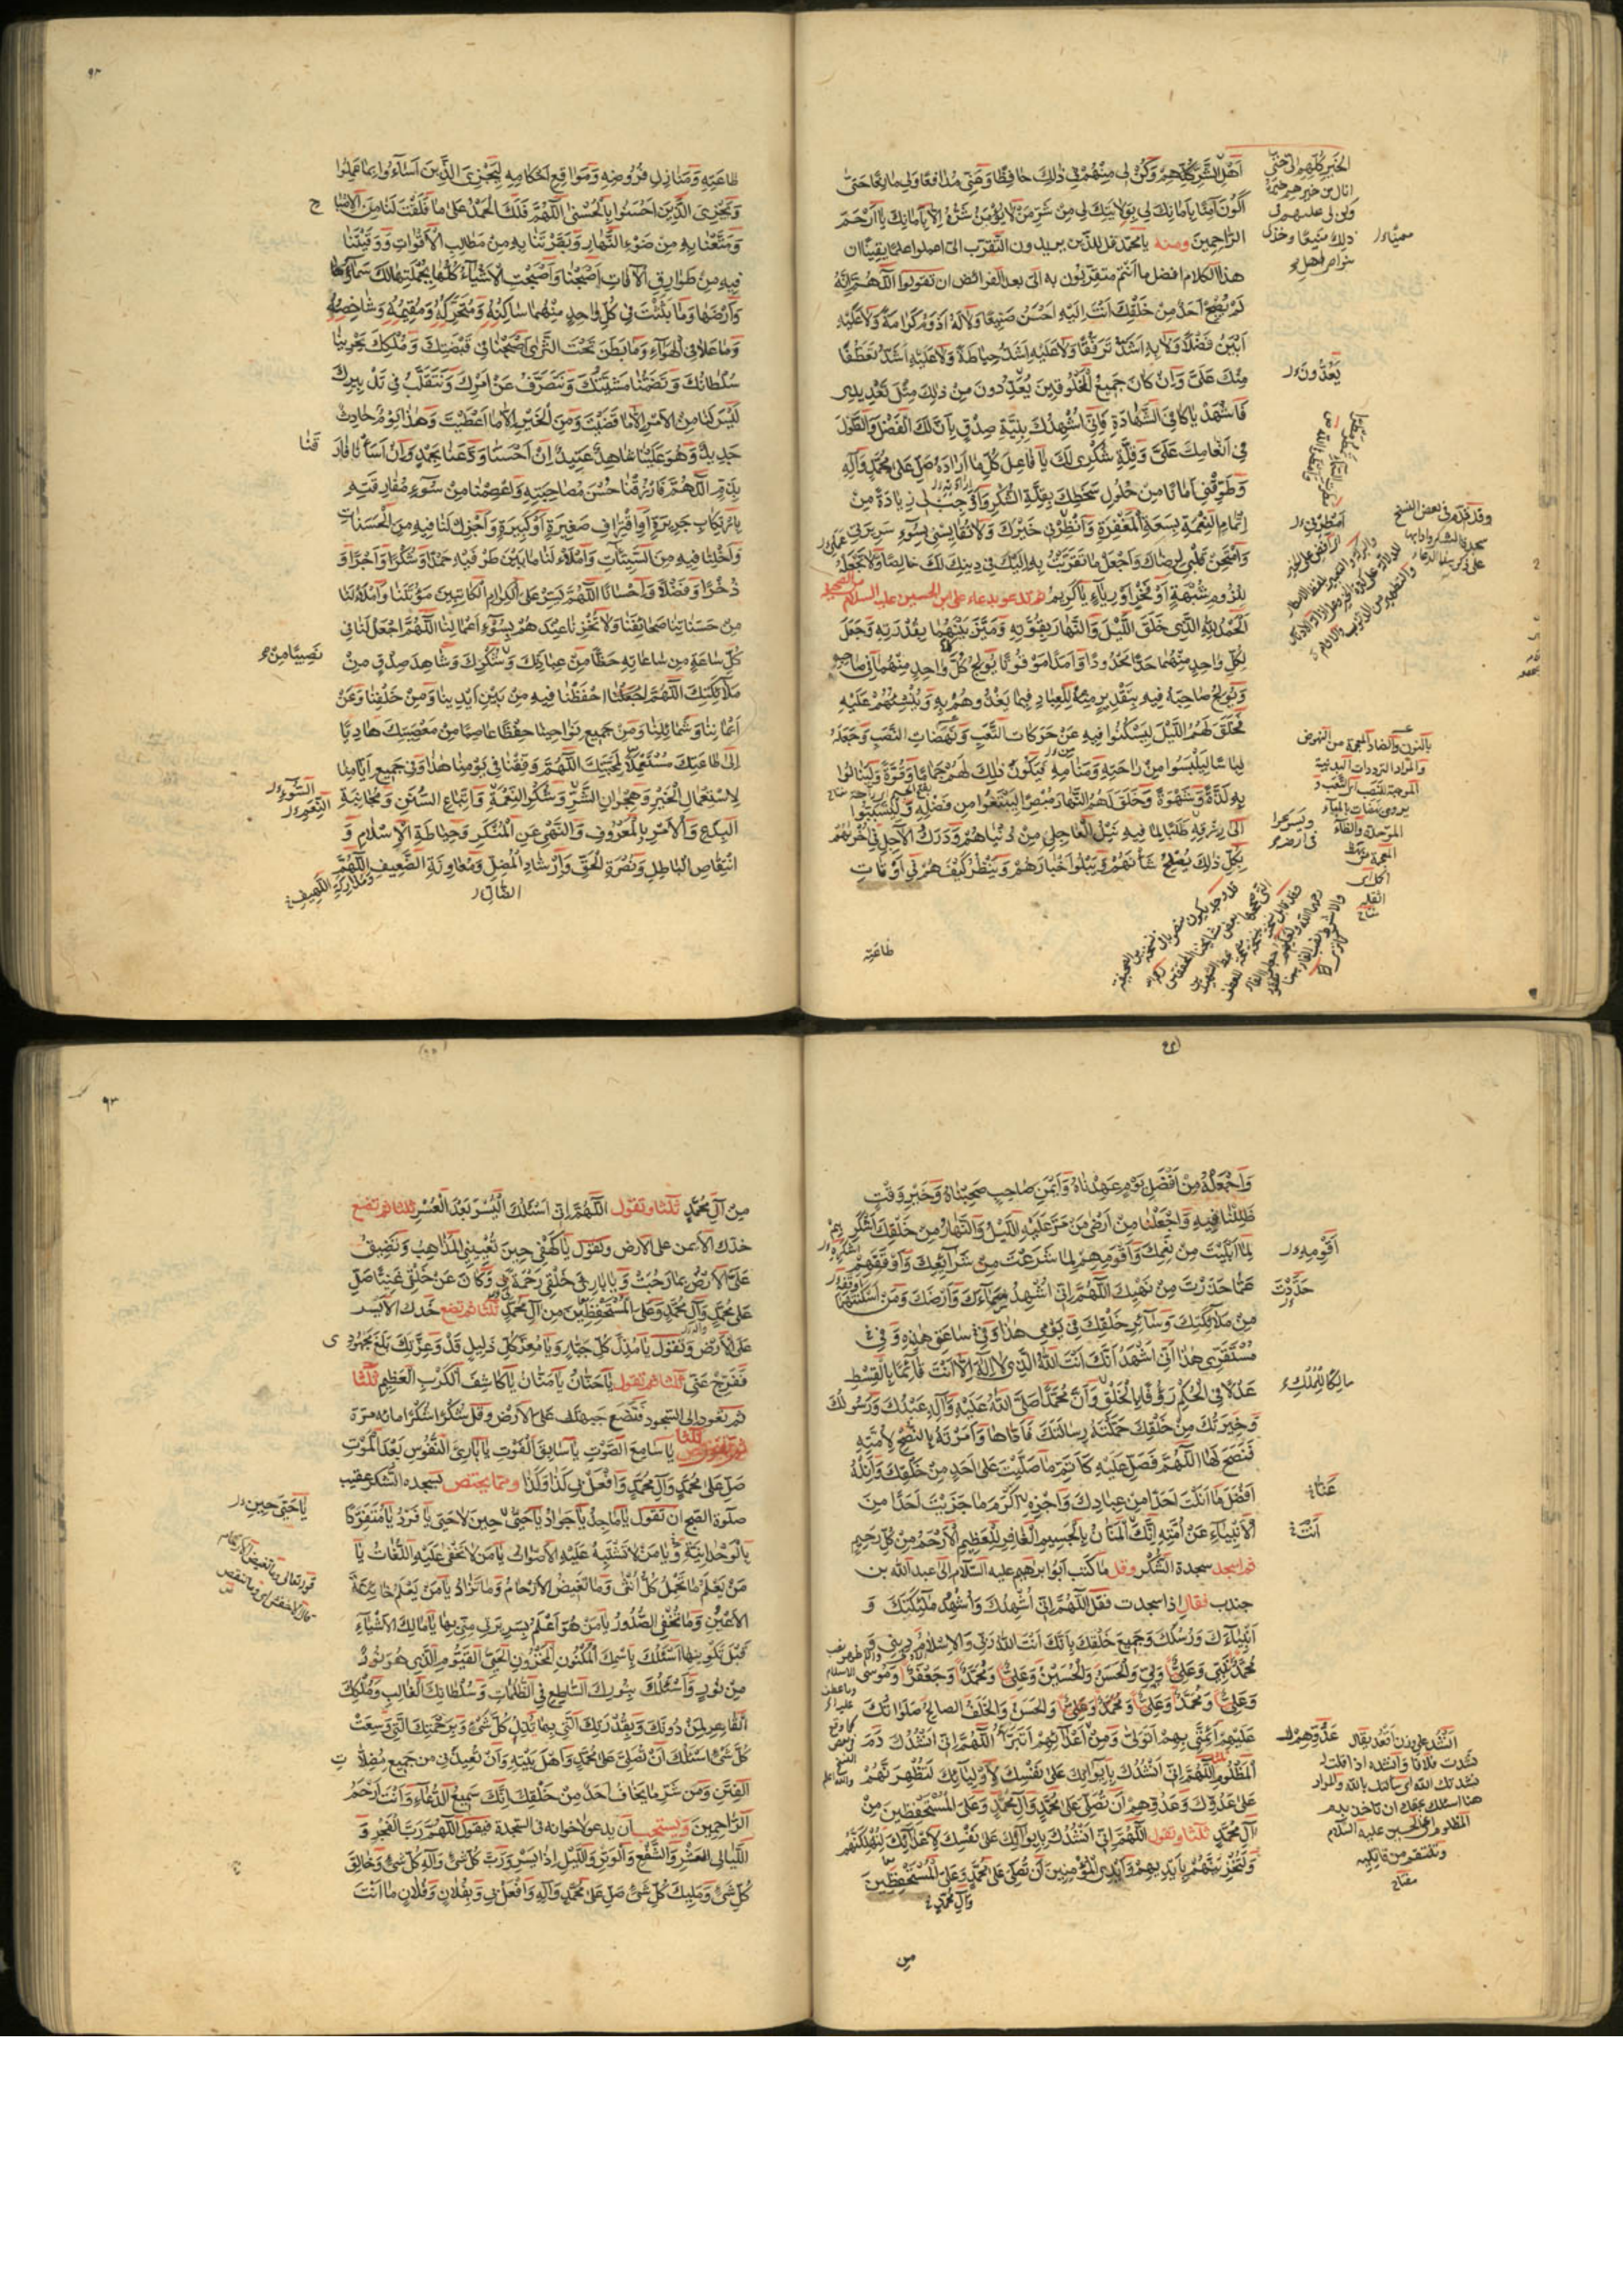 اَهْلِ الشَّرِّ كُلِّهِمْ وَكُنْ لِى مِنْهُمْ فِى ذٰلِكَ حَافِظًا وَعَنِّى مُدَافِعًا وَلِى مَانِعًا حَتّٰى
اَكُونَ آمِنًا بِاَمَانِكَ لِى بِوِلَايَتِكَ لِى مِنْ شَرِّ مَنْ لَا يُؤْمَنُ شَرُّهُ اِلَّا بِاَمَانِكَ يَا اَرْحَمَ
الرَّاحِمِينَ ومنه يا محمد قل للذين يريدون التقرب الىّ اعلموا علم يقين ان
هذا الكلام افضل ما انتم متقربون به الىّ بعد الفرائض ان تقولوا اَللّٰهُمَّ اِنَّهُ
لَمْ يُصْبِحْ اَحَدٌ مِنْ خَلْقِكَ اَنْتَ اِلَيْهِ اَحْسَنُ صَنِيعًا وَلَا لَهُ اَدْوَمُ كَرَامَةً وَلَا عَلَيْهِ
اَبْيَنُ فَضْلًا وَلَا بِهِ اَشَدُّ تَرَفُّقًا وَلَا عَلَيْهِ اَشَدُّ حِيَاطَةً وَلَا عَلَيْهِ اَشَدُّ تَعَطُّفًا
مِنْكَ عَلَىَّ وَاِنْ كَانَ جَمِيعُ الْمَخْلُوقِينَ يُعَدِّدُونَ مِنْ ذٰلِكَ مِثْلَ تَعْدِيدِى
فَاشْهَدْ يَا كَافِىَ الشَّهَادَةِ فَاِنِّى اُشْهِدُكَ بِنِيَّةِ صِدْقٍ بِاَنَّ لَكَ الْفَضْلَ وَالطَّوْلَ
فِى اِنْعَامِكَ عَلَىَّ وَقِلَّةِ شُكْرِى لَكَ يَا فَاعِلَ كُلِّ مَا اَرَادَهُ صَلِّ عَلٰى مُحَمَّدٍ وَآلِهِ
وَطَوِّقْنِى اَمَانًا مِنْ حُلُولِ سَخَطِكَ بِقِلَّةِ الشُّكْرِ وَاَوْجِبْ لِى زِيَادَةً مِنْ
اِتْمَامِ النِّعْمَةِ بِسَعَةِ الْمَغْفِرَةِ وَاَنْظِرْنِى خَيْرَكَ وَلَا تُقَايِسْنِى بِسُوءِ سَرِيرَتِى
وَامْتَحِنْ قَلْبِى لِرِضَاكَ وَاجْعَلْ مَا تَقَرَّبْتُ بِهِ اِلَيْكَ فِى دِينِكَ لَكَ خَالِصًا وَلَا تَجْعَلْهُ
لِلُزُومِ شُبْهَةٍ اَوْ فَخْرٍ اَوْ رِيَاءٍ يَا كَرِيمُ ثم تدعو بدعاء على بن الحسين عليه السلام
اَلْحَمْدُ لِلّٰهِ الَّذِى خَلَقَ اللَّيْلَ وَالنَّهَارَ بِقُوَّتِهِ وَمَيَّزَ بَيْنَهُمَا بِقُدْرَتِهِ وَجَعَلَ
لِكُلِّ وَاحِدٍ مِنْهُمَا حَدًّا مَحْدُودًا وَاَمَدًا مَوْقُوتًا يُولِجُ كُلَّ وَاحِدٍ مِنْهُمَا فِى صَاحِبِهِ
وَيُولِجُ صَاحِبَهُ فِيهِ بِتَقْدِيرٍ مِنْهُ لِلْعِبَادِ فِيمَا يَغْذُوهُمْ بِهِ وَيُنْشِئُهُمْ عَلَيْهِ
فَخَلَقَ لَهُمُ اللَّيْلَ لِيَسْكُنُوا فِيهِ عَنْ حَرَكَاتِ التَّعَبِ وَنَهَضَاتِ النَّصَبِ وَجَعَلَهُ
لِبَاسًا لِيَلْبَسُوا مِنْ رَاحَتِهِ وَمَنَامِهِ فَيَكُونَ ذٰلِكَ لَهُمْ جَمَامًا وَقُوَّةً وَلِيَنَالُوا
بِهِ لَذَّةً وَشَهْوَةً وَخَلَقَ لَهُمُ النَّهَارَ مُبْصِرًا لِيَبْتَغُوا مِنْ فَضْلِهِ وَلِيَتَسَبَّبُوا
اِلٰى رِزْقِهِ طَلَبًا لِمَا فِيهِ نَيْلُ الْعَاجِلِ مِنْ دُنْيَاهُمْ وَدَرَكُ الْآجِلِ فِى اُخْرٰيهُمْ
بِكُلِّ ذٰلِكَ يُصْلِحُ شَأْنَهُمْ وَيَبْلُوا اَخْبَارَهُمْ وَيَنْظُرُ كَيْفَ هُمْ فِى اَوْقَاتِ
طَاعَتِهِ
يُعَدُّونَ
بالنون والضاد المعجمة من النهوض
والمراد الترددات البدنية
الموجبة للنصب اى التعب
٩٢
طَاعَتِهِ وَمَنَازِلِ فُرُوضِهِ وَمَوَاقِعِ اَحْكَامِهِ لِيَجْزِىَ الَّذِينَ اَسَاؤُا بِمَا عَمِلُوا
وَيَجْزِىَ الَّذِينَ اَحْسَنُوا بِالْحُسْنٰى اَللّٰهُمَّ فَلَكَ الْحَمْدُ عَلٰى مَا فَلَقْتَ لَنَا مِنَ الْاِصْبَاحِ
وَمَتَّعْتَنَا بِهِ مِنْ ضَوْءِ النَّهَارِ وَبَصَّرْتَنَا بِهِ مِنْ مَطَالِبِ الْاَقْوَاتِ وَوَقَيْتَنَا
فِيهِ مِنْ طَوَارِقِ الْآفَاتِ اَصْبَحْنَا وَاَصْبَحَتِ الْاَشْيَاءُ كُلُّهَا بِجُمْلَتِهَا لَكَ سَمَاؤُهَا
وَاَرْضُهَا وَمَا بَثَثْتَ فِى كُلِّ وَاحِدٍ مِنْهُمَا سَاكِنُهُ وَمُتَحَرِّكُهُ وَمُقِيمُهُ وَشَاخِصُهُ
وَمَا عَلَا فِى الْهَوَاءِ وَمَا بَطَنَ تَحْتَ الثَّرٰى اَصْبَحْنَا فِى قَبْضَتِكَ وَمُلْكِكَ يَحْوِينَا
سُلْطَانُكَ وَتَضُمُّنَا مَشِيَّتُكَ وَنَتَصَرَّفُ عَنْ اَمْرِكَ وَنَتَقَلَّبُ فِى تَدْبِيرِكَ
لَيْسَ لَنَا مِنَ الْاَمْرِ اِلَّا مَا قَضَيْتَ وَمِنَ الْخَيْرِ اِلَّا مَا اَعْطَيْتَ وَهٰذَا يَوْمٌ حَادِثٌ
جَدِيدٌ وَهُوَ عَلَيْنَا شَاهِدٌ عَتِيدٌ اِنْ اَحْسَنَّا وَدَّعَنَا بِحَمْدٍ وَاِنْ اَسَأْنَا فَارَقَنَا
بِذَمٍّ اَللّٰهُمَّ فَارْزُقْنَا حُسْنَ مُصَاحَبَتِهِ وَاعْصِمْنَا مِنْ سُوءِ مُفَارَقَتِهِ
بِارْتِكَابِ جَرِيرَةٍ اَوِ اقْتِرَافِ صَغِيرَةٍ اَوْ كَبِيرَةٍ وَاَجْزِلْ لَنَا فِيهِ مِنَ الْحَسَنَاتِ
وَاَخْلِنَا فِيهِ مِنَ السَّيِّئَاتِ وَامْلَأْ لَنَا مَا بَيْنَ طَرَفَيْهِ حَمْدًا وَشُكْرًا وَاَجْرًا وَ
ذُخْرًا وَفَضْلًا وَاِحْسَانًا اَللّٰهُمَّ يَسِّرْ عَلَى الْكِرَامِ الْكَاتِبِينَ مَؤُنَتَنَا وَامْلَأْ لَنَا
مِنْ حَسَنَاتِنَا صَحَائِفَنَا وَلَا تُخْزِنَا عِنْدَهُمْ بِسُوءِ اَعْمَالِنَا اَللّٰهُمَّ اجْعَلْ لَنَا فِى
كُلِّ سَاعَةٍ مِنْ سَاعَاتِهِ حَظًّا مِنْ عِبَادِكَ وَشُكْرِكَ وَشَاهِدَ صِدْقٍ مِنْ
مَلَائِكَتِكَ اَللّٰهُمَّ احْفَظْنَا فِيهِ مِنْ بَيْنِ اَيْدِينَا وَمِنْ خَلْفِنَا وَعَنْ
اَيْمَانِنَا وَشَمَائِلِنَا وَمِنْ جَمِيعِ نَوَاحِينَا حِفْظًا عَاصِمًا مِنْ مَعْصِيَتِكَ هَادِيًا
اِلٰى طَاعَتِكَ مُسْتَعْمِلًا لِمَحَبَّتِكَ اَللّٰهُمَّ وَفِّقْنَا فِى يَوْمِنَا هٰذَا وَفِى جَمِيعِ اَيَّامِنَا
لِاسْتِعْمَالِ الْخَيْرِ وَهِجْرَانِ الشَّرِّ وَشُكْرِ النِّعْمَةِ وَاتِّبَاعِ السُّنَنِ وَمُجَانَبَةِ
الْبِدَعِ وَالْاَمْرِ بِالْمَعْرُوفِ وَالنَّهْىِ عَنِ الْمُنْكَرِ وَحِيَاطَةِ الْاِسْلَامِ وَ
انْتِقَاصِ الْبَاطِلِ وَنُصْرَةِ الْحَقِّ وَاِرْشَادِ الْمُضِلِّ وَمُعَاوَنَةِ الضَّعِيفِ اَللّٰهُمَّ
الضَّالِّ
نَصِيبًا مِنْ
وَاجْعَلْهُ مِنْ اَفْضَلِ يَوْمٍ عَهِدْنَاهُ وَاَيْمَنِ صَاحِبٍ صَحِبْنَاهُ وَخَيْرِ وَقْتٍ
ظَلِلْنَا فِيهِ وَاجْعَلْنَا مِنْ اَرْضٰى مَنْ مَرَّ عَلَيْهِ اللَّيْلُ وَالنَّهَارُ مِنْ خَلْقِكَ اَشْكَرِهِمْ
لِمَا اَبْلَيْتَ مِنْ نِعَمِكَ وَاَقْوَمِهِمْ لِمَا شَرَعْتَ مِنْ شَرَائِعِكَ وَاَوْقَفَهُمْ
عَمَّا حَذَّرْتَ مِنْ نَهْيِكَ اَللّٰهُمَّ اِنِّى اُشْهِدُ سَمَاءَكَ وَاَرْضَكَ وَمَنْ اَسْكَنْتَهُمَا
مِنْ مَلَائِكَتِكَ وَسَائِرِ خَلْقِكَ فِى يَوْمِى هٰذَا وَفِى سَاعَتِى هٰذِهِ وَفِى
مُسْتَقَرِّى هٰذَا اَنِّى اَشْهَدُ اَنَّكَ اَنْتَ اللّٰهُ الَّذِى لَا اِلٰهَ اِلَّا اَنْتَ قَائِمًا بِالْقِسْطِ
عَدْلًا فِى الْحُكْمِ رَؤُفًا بِالْخَلْقِ وَاَنَّ مُحَمَّدًا صَلَّى اللّٰهُ عَلَيْهِ وَآلِهِ عَبْدُكَ وَرَسُولُكَ
وَخِيَرَتُكَ مِنْ خَلْقِكَ حَمَّلْتَهُ رِسَالَتَكَ فَاَدَّاهَا وَاَمَرْتَهُ بِالنُّصْحِ لِاُمَّتِهِ
فَنَصَحَ لَهَا اَللّٰهُمَّ فَصَلِّ عَلَيْهِ كَاَتَمِّ مَا صَلَّيْتَ عَلٰى اَحَدٍ مِنْ خَلْقِكَ وَاَنِلْهُ
اَفْضَلَ مَا اَنَلْتَ اَحَدًا مِنْ عِبَادِكَ وَاجْزِهِ اَكْرَمَ مَا جَزَيْتَ اَحَدًا مِنَ
الْاَنْبِيَاءِ عَنْ اُمَّتِهِ اِنَّكَ الْمَنَّانُ بِالْجَسِيمِ الْغَافِرُ لِلْعَظِيمِ الْاَرْحَمُ مِنْ كُلِّ رَحِيمٍ
ثم اسجد سجدة الشكر وقل ما كتب ابو ابراهيم عليه السلام الى عبد الله بن
جندب فقال اذا سجدت فقل اَللّٰهُمَّ اِنِّى اُشْهِدُكَ وَاُشْهِدُ مَلٰئِكَتَكَ وَ
اَنْبِيَاءَكَ وَرُسُلَكَ وَجَمِيعَ خَلْقِكَ بِاَنَّكَ اَنْتَ اللّٰهُ رَبِّى وَالْاِسْلَامُ دِينِى وَ
مُحَمَّدٌ نَبِيِّى وَعَلِىٌّ وَلِيِّى وَالْحَسَنُ وَالْحُسَيْنُ وَعَلِىٌّ وَمُحَمَّدٌ وَجَعْفَرٌ وَمُوسٰى
وَعَلِىٌّ وَمُحَمَّدٌ وَعَلِىٌّ وَالْحَسَنُ وَالْخَلَفُ الصالح صَلَوَاتُكَ
عَلَيْهِمْ اَئِمَّتِى بِهِمْ اَتَوَلّٰى وَمِنْ اَعْدَائِهِمْ اَتَبَرَّأُ اَللّٰهُمَّ اِنِّى اَنْشُدُكَ دَمَ
الْمَظْلُومِ اَللّٰهُمَّ اِنِّى اَنْشُدُكَ بِاِيوَائِكَ عَلٰى نَفْسِكَ لِاَوْلِيَائِكَ لَتُظْهِرَنَّهُمْ
عَلٰى عَدُوِّكَ وَعَدُوِّهِمْ اَنْ تُصَلِّىَ عَلٰى مُحَمَّدٍ وَآلِ مُحَمَّدٍ وَعَلَى الْمُسْتَحْفَظِينَ مِنْ
آلِ مُحَمَّدٍ ثلثا وتقول اَللّٰهُمَّ اِنِّى اَنْشُدُكَ بِاِيوَائِكَ عَلٰى نَفْسِكَ لِاَعْدَائِكَ لَتُهْلِكَنَّهُمْ
وَلَتُخْزِيَنَّهُمْ بِاَيْدِيهِمْ وَاَيْدِى الْمُؤْمِنِينَ اَنْ تُصَلِّىَ عَلٰى مُحَمَّدٍ وَعَلَى الْمُسْتَحْفَظِينَ
وَآلِ مُحَمَّدٍ
مِن
اَقْوَمِهِ
حَذَّرْتَ
عَنَّا
نشدت فلانا وانشده اذا قلت له
نشدتك الله اى سالتك بالله والمراد
هنا اسئلك بحقك ان تاخذ بدم
المظلوم اعنى الحسين عليه السلام
مفتاح
٩٣
مِنْ آلِ مُحَمَّدٍ ثلثا وتقول اَللّٰهُمَّ اِنِّى اَسْئَلُكَ الْيُسْرَ بَعْدَ الْعُسْرِ ثلثا ثم تضع
خدك الايمن على الارض وتقول يَا كَهْفِى حِينَ تُعْيِينِى الْمَذَاهِبُ وَتَضِيقُ
عَلَىَّ الْاَرْضُ بِمَا رَحُبَتْ وَيَا بَارِئَ خَلْقِى رَحْمَةً بِى وَكَانَ عَنْ خَلْقِى غَنِيًّا صَلِّ
عَلٰى مُحَمَّدٍ وَآلِ مُحَمَّدٍ وَعَلَى الْمُسْتَحْفَظِينَ مِنْ آلِ مُحَمَّدٍ ثلثا ثم تضع خدك الايسر
على الارض وتقول يَا مُذِلَّ كُلِّ جَبَّارٍ وَيَا مُعِزَّ كُلِّ ذَلِيلٍ قَدْ وَعِزَّتِكَ بَلَغَ مَجْهُودِى
فَفَرِّجْ عَنِّى ثلثا ثم تقول يَا حَنَّانُ يَا مَنَّانُ يَا كَاشِفَ الْكُرَبِ الْعِظَامِ ثلثا
ثم تعود الى السجود فتضع جبهتك على الارض وقل شُكْرًا شُكْرًا مائة مرة
يَا سَامِعَ الصَّوْتِ يَا سَابِقَ الْفَوْتِ يَا بَارِئَ النُّفُوسِ بَعْدَ الْمَوْتِ
صَلِّ عَلٰى مُحَمَّدٍ وَآلِ مُحَمَّدٍ وَافْعَلْ بِى كَذَا وَكَذَا ومما يختص بسجدة الشكر عقيب
صلوة الصبح ان تقول يَا مَاجِدُ يَا جَوَادُ يَا حَىُّ حِينَ لَا حَىَّ يَا فَرْدُ يَا مُتَفَرِّدًا
بِالْوَحْدَانِيَّةِ وَيَا مَنْ لَا تَشْتَبِهُ عَلَيْهِ الْاَصْوَاتُ يَا مَنْ لَا تَخْفٰى عَلَيْهِ اللُّغَاتُ يَا
مَنْ يَعْلَمُ مَا تَحْمِلُ كُلُّ اُنْثٰى وَمَا تَغِيضُ الْاَرْحَامُ وَمَا تَزْدَادُ يَا مَنْ يَعْلَمُ خَائِنَةَ
الْاَعْيُنِ وَمَا تُخْفِى الصُّدُورُ يَا مَنْ هُوَ اَعْلَمُ بِسَرِيرَتِى مِنِّى بِهَا يَا مَالِكَ الْاَشْيَاءِ
قَبْلَ تَكْوِينِهَا اَسْئَلُكَ بِاسْمِكَ الْمَكْنُونِ الْمَخْزُونِ الْحَىِّ الْقَيُّومِ الَّذِى هُوَ نُورٌ
مِنْ نُورٍ وَاَسْئَلُكَ بِنُورِكَ السَّاطِعِ فِى الظُّلُمَاتِ وَسُلْطَانِكَ الْغَالِبِ وَمُلْكِكَ
الْقَاهِرِ لِمَنْ دُونَكَ وَبِقُدْرَتِكَ الَّتِى بِهَا تُذِلُّ كُلَّ شَىْءٍ وَبِرَحْمَتِكَ الَّتِى وَسِعَتْ
كُلَّ شَىْءٍ اَسْئَلُكَ اَنْ تُصَلِّىَ عَلٰى مُحَمَّدٍ وَاَهْلِ بَيْتِهِ وَاَنْ تُعِيذَنِى مِنْ جَمِيعِ مُضِلَّاتِ
الْفِتَنِ وَمِنْ شَرِّ مَا يَخَافُ اَحَدٌ مِنْ خَلْقِكَ اِنَّكَ سَمِيعُ الدُّعَاءِ وَاَنْتَ اَرْحَمُ
الرَّاحِمِينَ ويستحب ان يدعو لاخوانه فى السجدة فيقول اَللّٰهُمَّ رَبَّ الْفَجْرِ وَ
اللَّيَالِى الْعَشْرِ وَالشَّفْعِ وَالْوَتْرِ وَاللَّيْلِ اِذَا يَسْرِ وَرَبَّ كُلِّ شَىْءٍ وَاِلٰهَ كُلِّ شَىْءٍ وَخَالِقَ
كُلِّ شَىْءٍ وَمَلِيكَ كُلِّ شَىْءٍ صَلِّ عَلٰى مُحَمَّدٍ وَآلِهِ وَافْعَلْ بِى وَبِفُلَانٍ وَفُلَانٍ مَا اَنْتَ